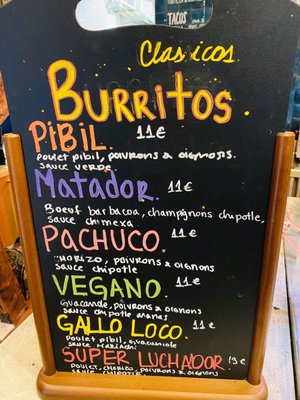 TACOS
Clasicos
BURRITOS
PIBIL. 11€
Poulet pibil, poivrons & oignons.
sauce verde.
Matador. 11€
Boeuf barbacoa, champignons chipotle,
sauce chimexa
PACHUCO. 11€
chorizo, poivrons & oignons
sauce chipotle
VEGANO. 11€
Guacamole, poivrons & oignons
sauce chipotle
GALLO LOCO. 11€
Poulet pibil, guacamole
sauce Mariachi
SUPER LUCHADOR. 13€
POULET, CHORIZO, POIVRONS & OIGNONS
SAUCE CHIPOTLE